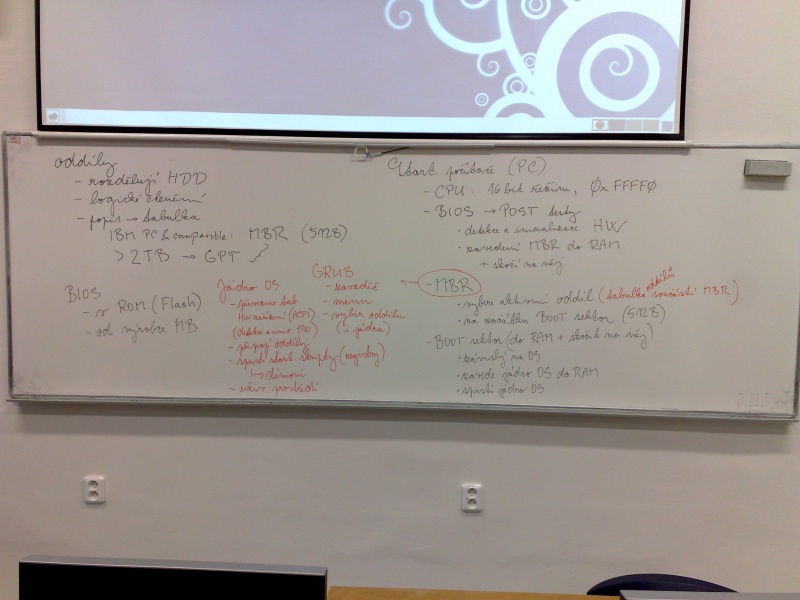 oddíly
- rozdělují HDD
- logické členění
- popis → tabulka
IBM PC & compatible: MBR (512B)
> 2TB → GPT
BIOS
- v ROM (Flash)
- od výrobce MB
Jádro OS
- převezme
HW zařízení (ACPI)
(detekce a HW)
- připojí oddíly
- spustí start. skripty (registry)
↳ démoni
- uživ. prostředí
GRUB
- zavaděč
- menu
- výběr oddílu
(i jádra)
Start počítače (PC)
- CPU: 16 bit režim, 0xFFFF0
- BIOS → POST testy
· detekce a inicializace HW
· zavedení MBR do RAM
+ skočí na něj
- MBR
· vybere aktivní oddíl (tabulka oddílů součástí MBR)
· na začátku BOOT sektor (512B)
- BOOT sektor (do RAM + skočit na něj)
· závislý na OS
· zavede jádro OS do RAM
· spustí jádro OS